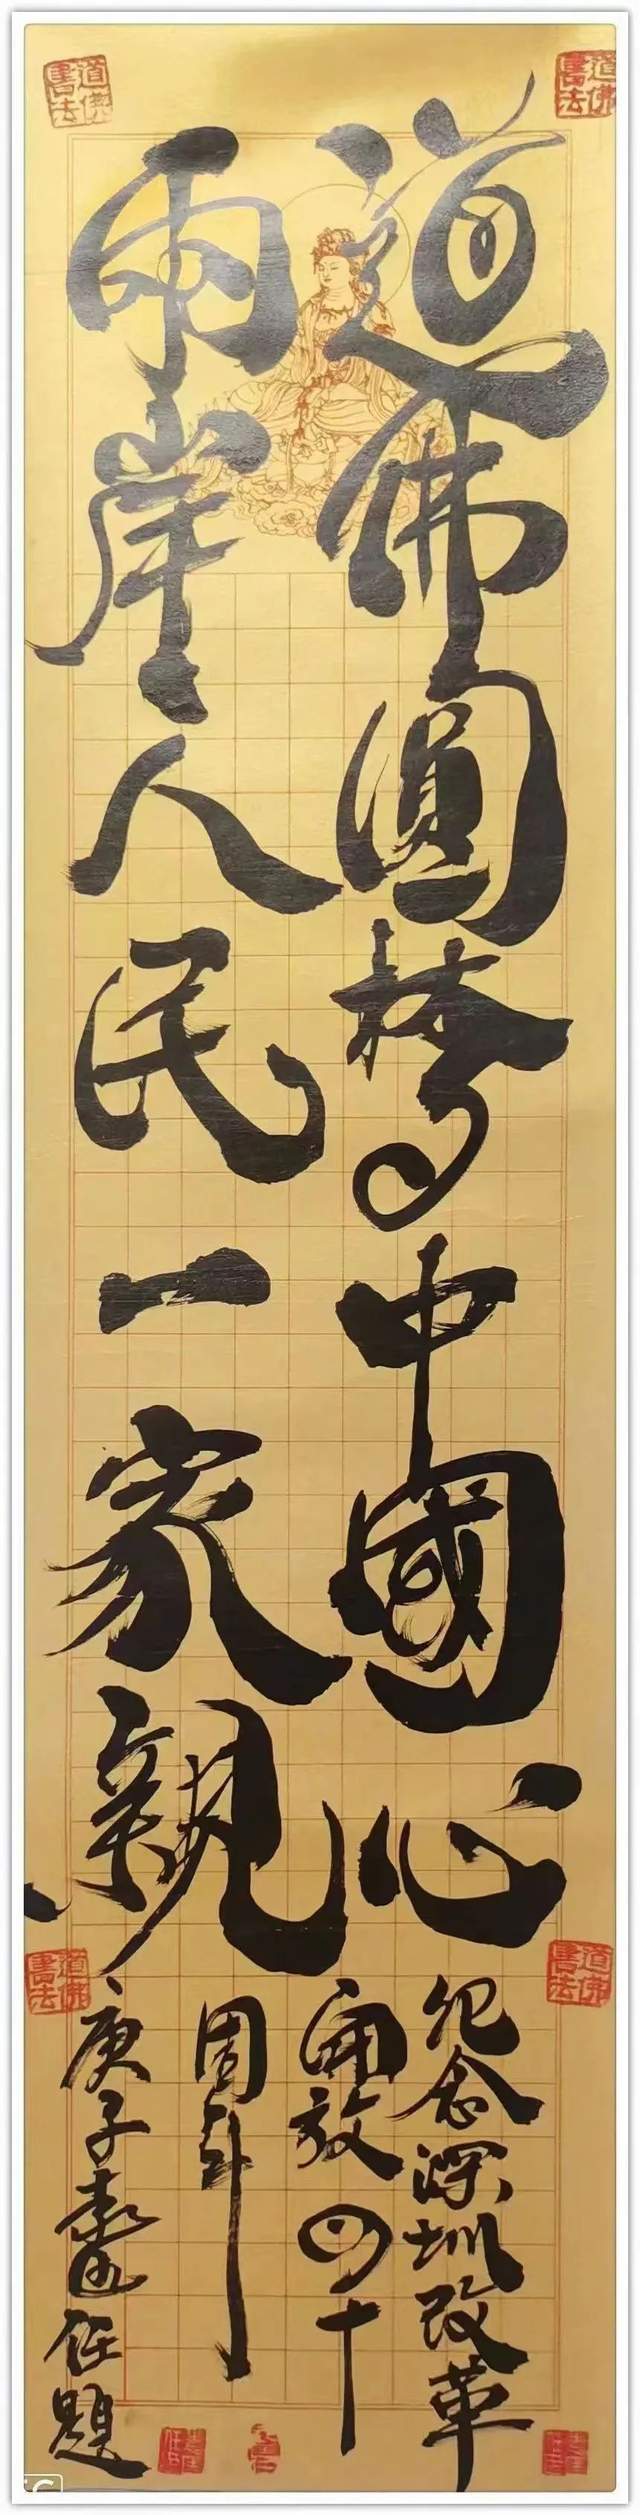 道佛書法
道佛書法
道佛圓梦中國心
兩岸人民一家親
道佛書法
道佛書法
纪念深圳改革
開放四十
周年
庚子任題